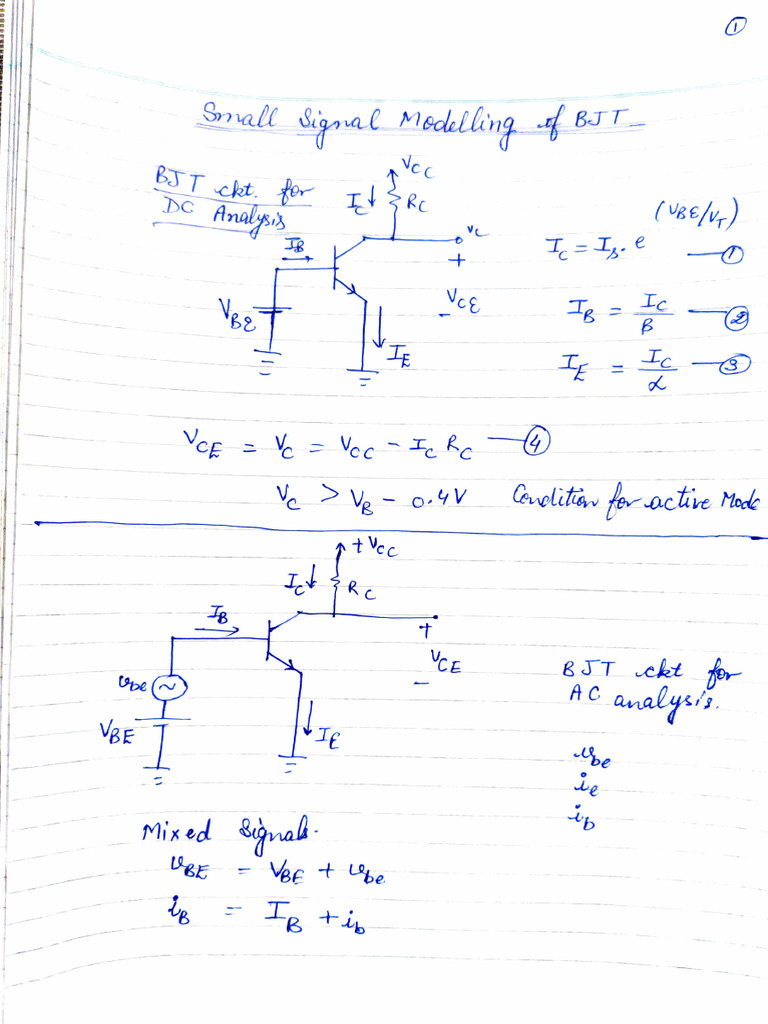 ①
Small Signal Modelling of BJT
BJT ckt. for
DC Analysis
VCC
IC↓ RC
IB
VC
+
VCE
-
VBE
IE
IC = Is . e (VBE/VT) —①
IB = IC/β —②
IE = IC/α —③
VCE = VC = VCC - IC RC —④
VC > VB - 0.4V Condition for active Mode
+ VCC
IC↓ RC
IB
+
VCE
-
vbe
VBE
IE
BJT ckt for
AC analysis.
vbe
ie
ib
Mixed Signals.
vBE = VBE + vbe
iB = IB + ib